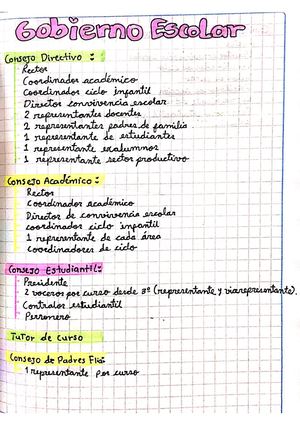 Gobierno Escolar
Consejo Directivo:
Rector
Coordinador académico
Coordinador ciclo infantil
Director convivencia escolar
2 representantes docentes
2 representantes padres de familia
1 representante de estudiantes
1 representante exalumnos
1 representante sector productivo
Consejo Académico:
Rector
Coordinador académico
Director de convivencia escolar
coordinador ciclo infantil
1 representante de cada área
Coordinadores de ciclo
Consejo Estudiantil:
Presidente
2 voceros por curso desde 3º (representante y vicerepresentante).
Contralor estudiantil
Personero
Tutor de curso
Consejo de Padres
1 representante por curso